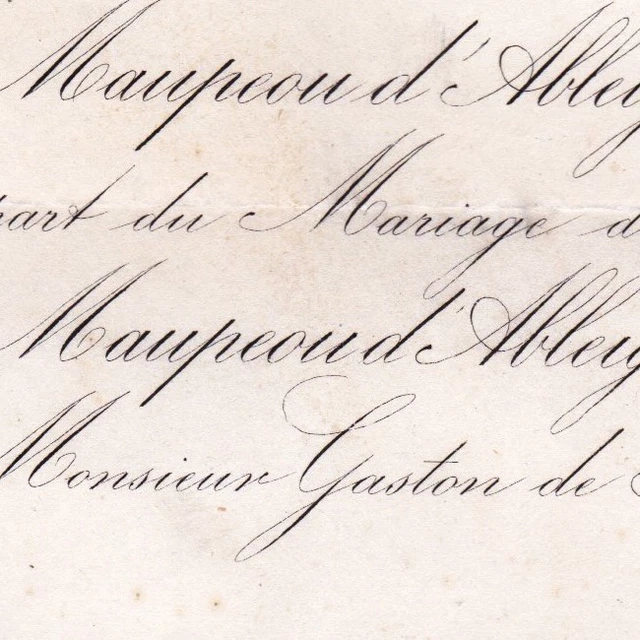 Maupeou d'Ableig
part du Mariage d
Maupeou d'Ableig
Monsieur Gaston de